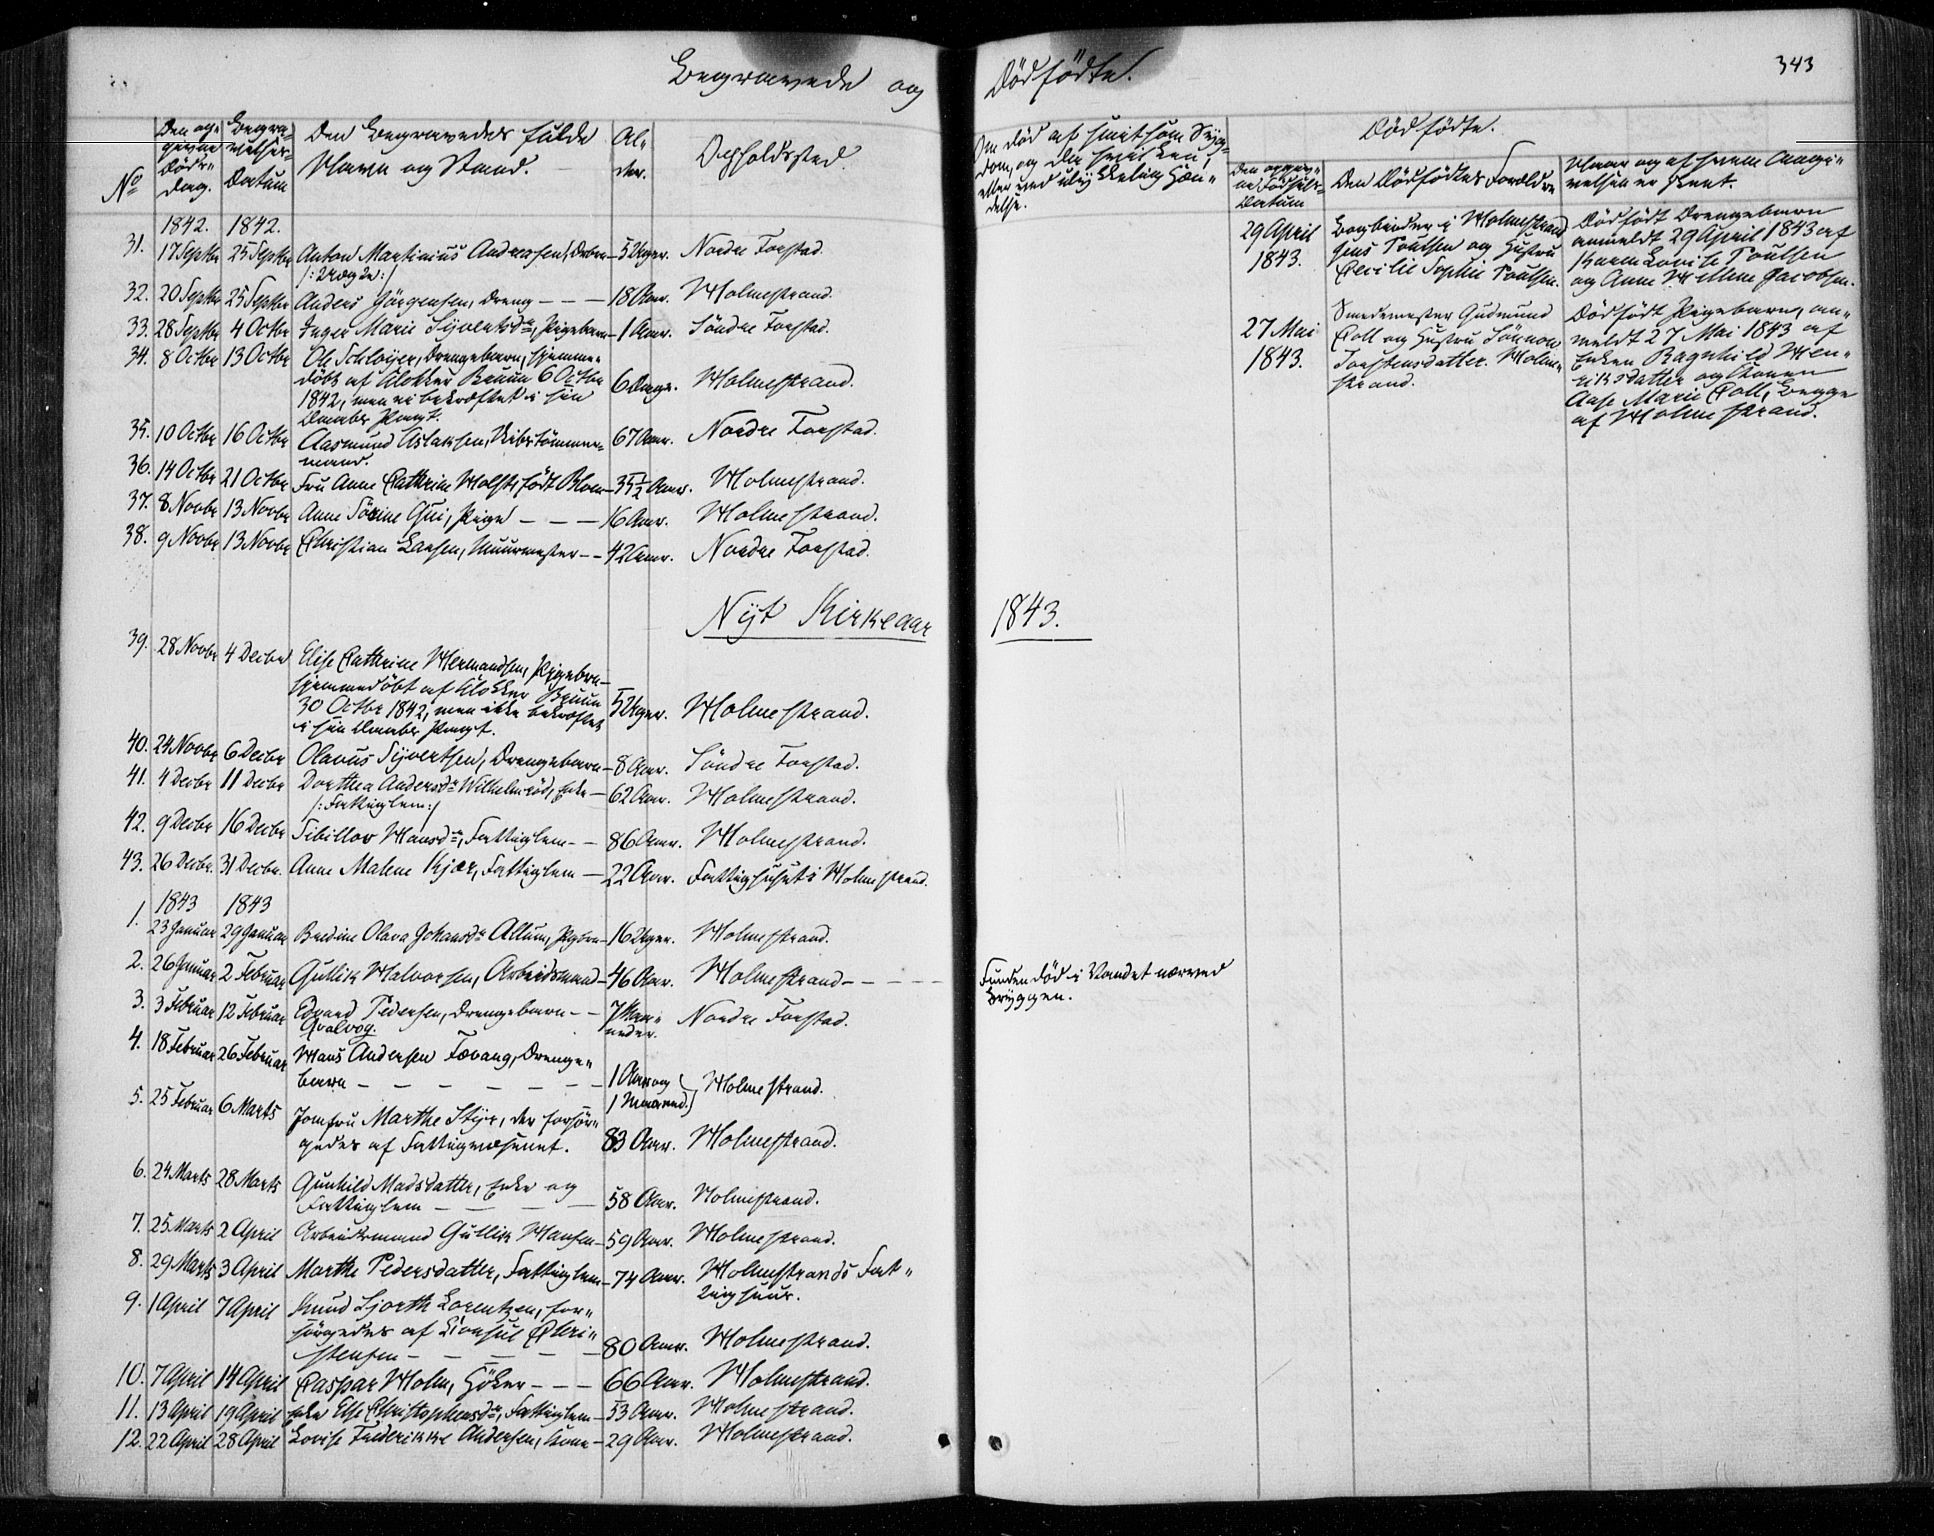 Begravede og Dödfödte.
343
No
Den opgivne Döds-Dag.
Begravelses-Datum
Den Begravedes fulde Navn og Stand.
Alder.
Opholdssted.
Om död af smitsom Sygdom, og da hvilken; eller ved ulykkelig Hændelse.
Dödfödte.
Den opgivne Födsels-Datum
Den Dödfödtes Forældre
Naar og af hvem Angivelsen er skeet.
1842. 1842.
31. 17 Septbr 25 Septbr Anton Martinius Andersen, Drbrn 5 Uger. Nordre Forstad.
/: Uægte :/
32. 20 Septbr 25 Septbr Anders Jörgensen, Dreng - - - 18 Aar. Holmestrand.
33. 28 Septbr 4 Octbr Inger Marie Syvertsdr, Pigebarn - 1 Aar. Söndre Forstad.
34. 8 Octbr 13 Octbr Ole Schloyer, Drengebarn, hjemme-
döbt af Klokker Bruun 6 Octbr
1842, men ei bekræftet i sin
Daabs Pagt.
6 Dage. Holmestrand.
35. 10 Octbr 16 Octbr Aasmund Aslaksen, Skibstömmer-
mand.
67 Aar. Nordre Forstad.
36. 14 Octbr 21 Octbr Fru Anne Cathrine Holst, födt Blom - 35½ Aar. Holmestrand.
37. 8 Novbr 13 Novbr Anne Sörine Gui, Pige - - - 16 Aar. Holmestrand.
38. 9 Novbr 13 Novbr Christian Larsen, Muurmester - - 42 Aar. Nordre Forstad.
Nyt Kirkeaar 1843.
39. 28 Novbr 4 Decbr Elise Cathrine Hermandsen, Pigebrn -
hjemmedöbt af Klokker Bruun
30 Octbr 1842, men ikke bekræftet
i sin Daabs Pagt.
5 Uger. Holmestrand.
40. 24 Novbr 6 Decbr Olavus Syvertsen, Drengebarn - 8 Aar. Söndre Forstad.
41. 4 Decbr 11 Decbr Dorthea Andersdr Wilhelmröd, Enke - 62 Aar. Holmestrand.
/: Fattiglem :/
42. 9 Decbr 16 Decbr Sibillov Hansdr, Fattiglem - - 86 Aar. Holmestrand.
43. 26 Decbr. 31 Decbr. Anne Malene Kjær, Fattiglem - 22 Aar. Fattighuset i Holmestrand.
1843 1843
1. 23 Januar 29 Januar Berdine Olava Johansdr Allum, Pigbrn - 16 Uger. Holmestrand.
2. 26 Januar 2 Februar Gullik Halvorsen, Arbeidsmand - 46 Aar. Holmestrand - - - - Funden död i Vandet nærved
Bryggen.
3. 3 Februar 12 Februar Edvard Pedersen, Drengebarn - - 7 Maa-
neder. Nordre Forstad.
Qvalvog.
4. 18 Februar 26 Februar Hans Andersen Tovang, Drenge-
barn - - - - - - - 1 Aar og
1 Maaned. } Holmestrand.
5. 25 Februar 6 Marts Jomfru Marthe Styr, der forsör-
gedes af Fattigvæsenet. 83 Aar. Holmestrand.
6. 24 Marts 28 Marts Gunhild Madsdatter, Enke og
Fattiglem - - - - 58 Aar. Holmestrand.
7. 25 Marts 2 April Arbeidsmand Gullik Hansen - 59 Aar. Holmestrand.
8. 29 Marts 3 April Marthe Pedersdatter, Fattiglem - 74 Aar. Holmestrands Fat-
tighuus.
9. 1 April 7 April Knud Hjorth Lorentzen, for-
sörgedes af Consul Chri-
stensen - - - - - 80 Aar. Holmestrand.
10. 7 April 14 April Caspar Holm, Höker - - - 66 Aar. Holmestrand.
11. 13 April 19 April Enke Else Christophersdr, Fattiglem - 53 Aar. Holmestrand.
12. 22 April 28 April Lovise Frederikke Andersen, Kone - 29 Aar. Holmestrand.
29 April
1843.
Bogbinder i Holmestrand
Jens Poulsen og Hustru
Cecilie Sophie Poulsen.
Dödfödt Drengebarn
anmeldt 29 April 1843 af
Karen Lovise Poulsen
og Anne Helene Jacobsen.
27 Mai
1843.
Smedemester Gudmund
Coll og Hustru Sönnov
Torstensdatter. Holme-
strand.
Dödfödt Pigebarn, an-
meldt 27 Mai 1843 af
Enken Ragnhild Hen-
riksdatter og Konen
Aase Marie Coll, begge
af Holmestrand.